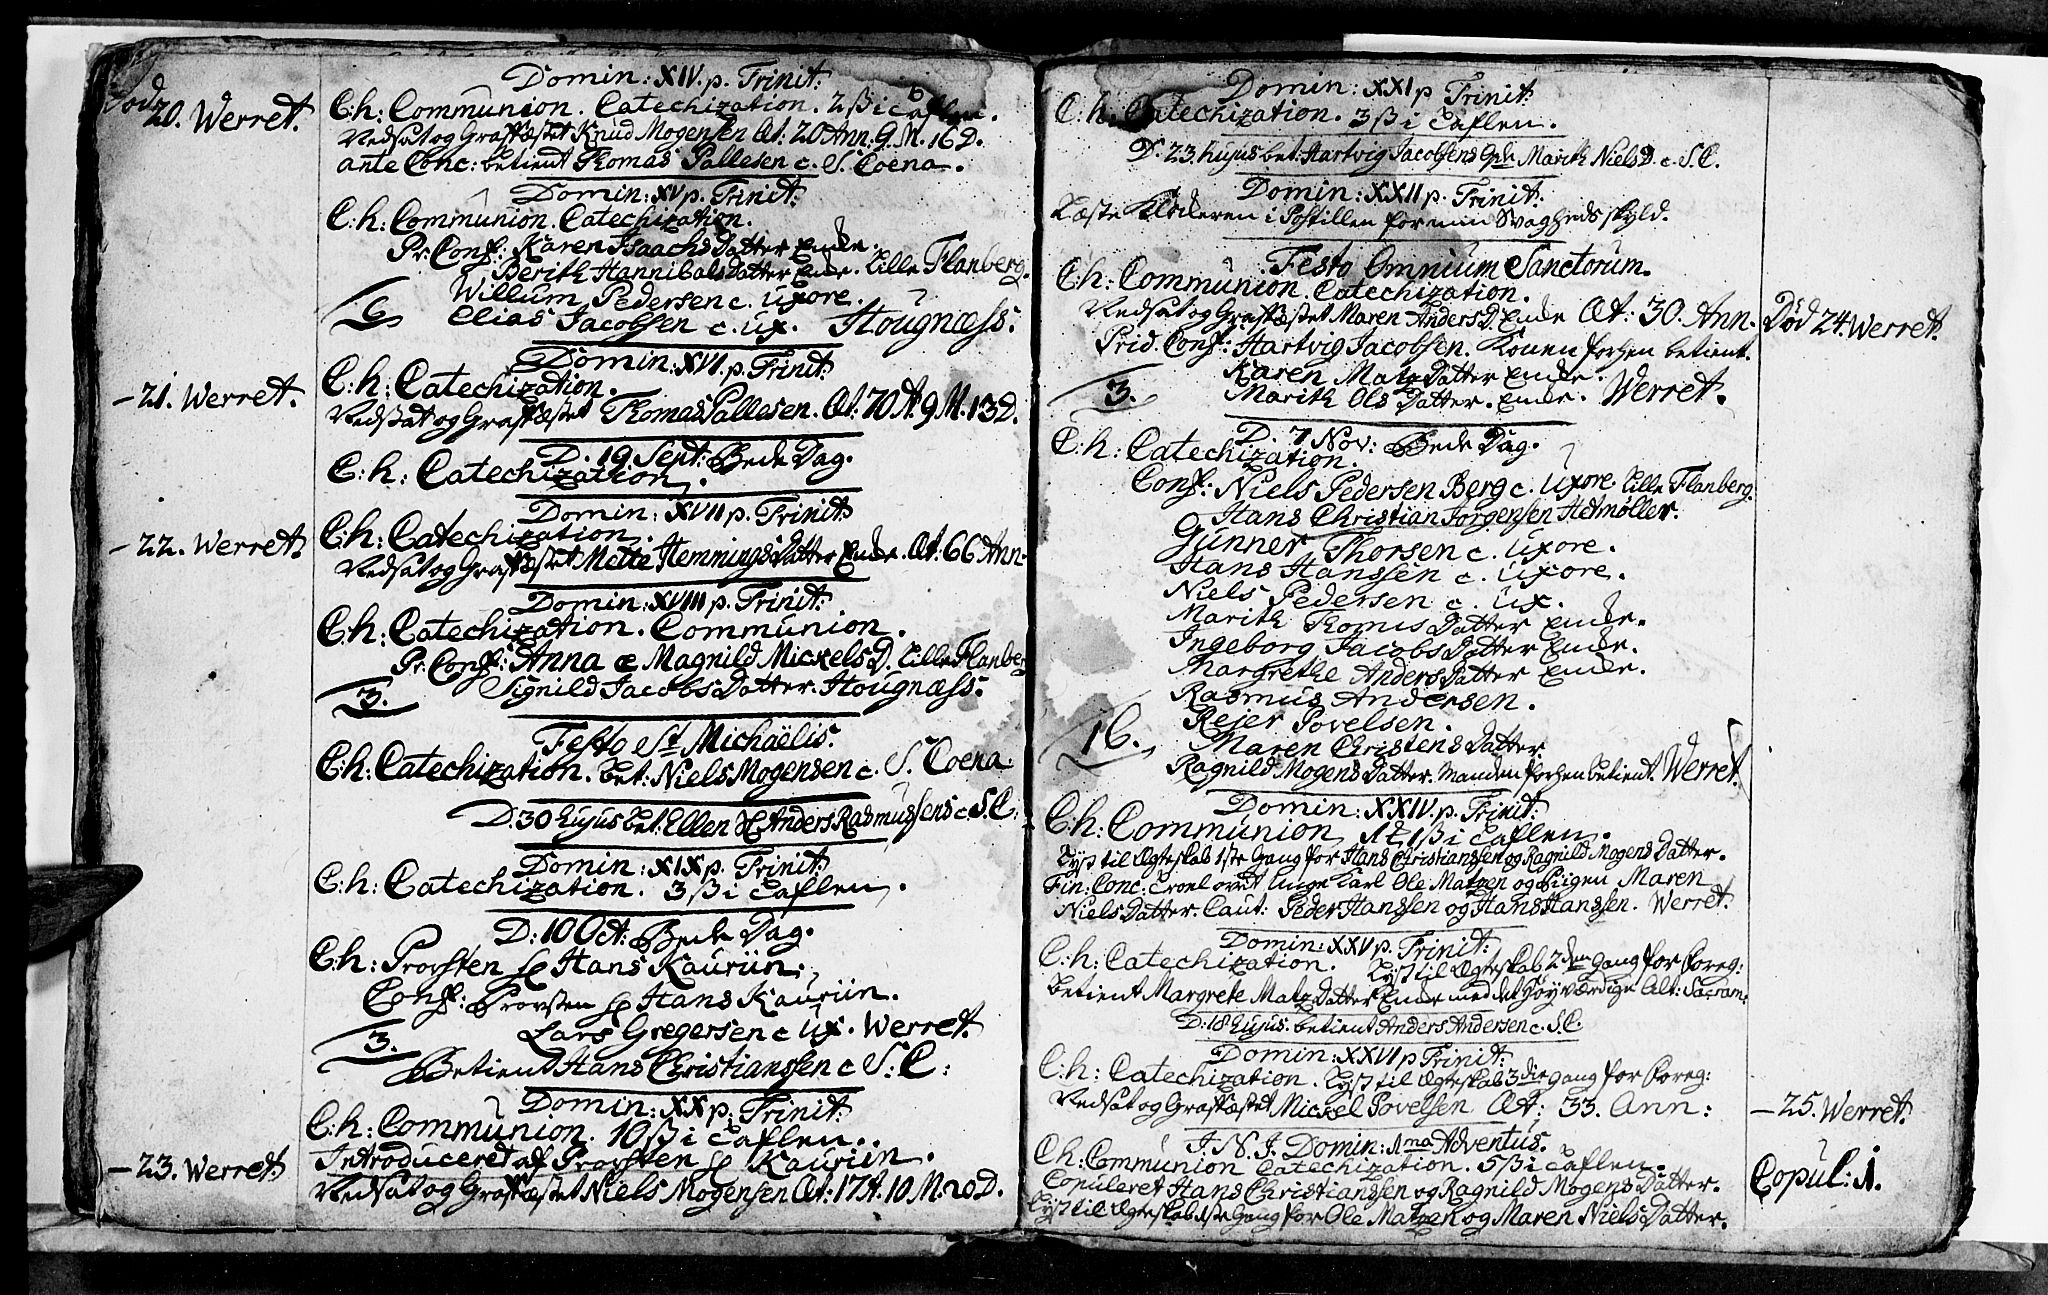 Domin: XIV. p. Trinit:
Död 20. Werret.
C: h: Communion. Catechization. 2 ß i Taflen.
Nedsat og Grafkæstet Knud Mogensen Æt. 20 Ann. 9. M. 16 D.
ante Conc: betient Thomas Pallesen c. S. Coena.
Domin: XV p. Trinit:
C: h: Communion. Catechization.
Pr: Conf: Karen Isaachs Datter Encke.
Berith Hannibals Datter Encke. Lille Flanberg.
Willum Pedersen c. Uxore.
6 Elias Jacobsen c. Ux. Hougnæss.
Domin: XVI. p. Trinit:
C: h: Catechization.
- 21. Werret.
Nedsat og Grafkæstet Thomas Pallesen. Æt. 70 A. 9 M. 13 D.
D. 19. Sept: Bede Dag.
C: h: Catechization.
Domin: XVII p. Trinit:
C: h: Catechization.
- 22. Werret.
Nedsat og Grafkæstet Mette Hemmings Datter Encke. Æt: 66 Ann.
Domin: XVIII p. Trinit:
C: h: Catechization. Communion.
Pr: Conf: Anna & Magnild Mickels D. Lille Flanberg
3. Signild Jacobs Datter. Hougnæss.
Festo St Michaëlis.
C: h: Catechization. bet: Niels Mogensen c. S. Coena.
D: 30 hujus bet. Ellen Anders Rasmussens c. S. C:
Domin: XIX p. Trinit:
C: h: Catechization. 3 ß i Taflen.
D: 10 Oct: Bede Dag.
C: h: Provsten Hans Kauriin.
Conf: Provsten Hans Kauriin.
3. Lars Gregersen c Ux. Werret.
Betient Hans Christianssen c S. C:
Domin: XX p: Trinit:
C: h: Communion. 10 ß i Taflen.
Introduceret af Provsten Kauriin.
- 23. Werret.
Nedsat og Grafkæstet Niels Mogensen Æt: 17 A. 10 M. 20 D.
Domin: XXI p Trinit:
C: h: Catechization. 3 ß i Taflen.
D. 23. hujus bet: Hartvig Jacobsens Marith Niels D. c. S. C.
Domin: XXII p. Trinit:
Læste Klockeren i Postillen for min Svagheds skyld.
Festo Omnium Sanctorum.
C: h: Communion. Catechization.
Nedsat og Grafkæstet Maren Anders D. Encke Æt: 30. Ann.
Död 24. Werret.
Prid. Conf: Hartvig Jacobsen. Konen forhen betient.
Karen Matz Datter Encke.
3. Marith Ols Datter. Encke. Werret.
D. 7 Nov: Bede Dag.
C: h: Catechization.
Conf: Niels Pedersen Berg c. Uxore. Lille Flanberg.
Hans Christian Jorgensen Hetmøller.
Gunner Thorsen c. Uxore.
Hans Hanssen c. Uxore.
Niels Pedersen c. Ux.
Marith Thomis Datter Encke.
Ingeborg Jacobs Datter Encke.
Margrethe Anders Datter Encke.
Rasmus Andersen.
Rejer Povelsen.
16. Maren Christens Datter
Ragnild Mogens Datter. Manden forhen betient. Werret.
Domin: XXIV. p. Trinit:
C: h: Communion 1 ß i Taflen.
Lyst til Ægteskab 1ste Gang for Hans Christianssen og Ragnild Mogens Datter.
Fin: Conc: Trolovet Unge Karl Ole Matzen og Piigen Maren
Niels Datter. Caut: Peder Hanssen og Hans Hanssen. Werret.
Domin: XXV p. Trinit:
C: h: Catechization. Lyst til Ægteskab 2den Gang for Foreg:
betient Margrete Matz Datter Encke med det Höyværdige Alt: Sacram.
D: 18 hujus betient Anders Andersen c. S. C.
Domin: XXVI p Trinit:
C: h: Catechization. Lyst til Ægteskab 3die Gang for Foreg:
Nedsat og Grafkæstet Mickel Povelsen Æt: 33. Ann:
- 25. Werret.
J. N. J. Domin: 1ma Adventus.
C h: Communion Catechization. 5 ß i Taflen.
Copuleret Hans Christianssen og Ragnild Mogens Datter.
Copul: 1.
Lyst til Ægteskab 1ste Gang for Ole Matzen og Maren Niels Datter.